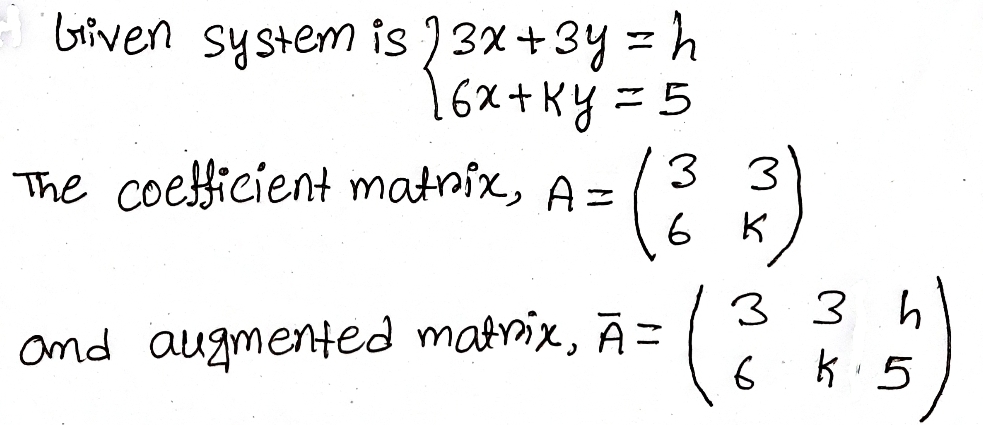 Given system is { 3x + 3y = h
6x + Ky = 5
The coefficient matrix, A = ( 3 3
6 K )
and augmented matrix, Ā = ( 3 3 h
6 K 5 )